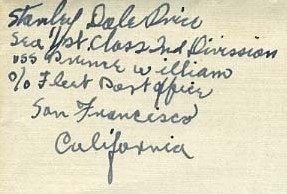 Stanley Dale Price
Sea 1/st. Class 2nd Division
USS Prince William
c/o Fleet Post Office
San Francisco
California